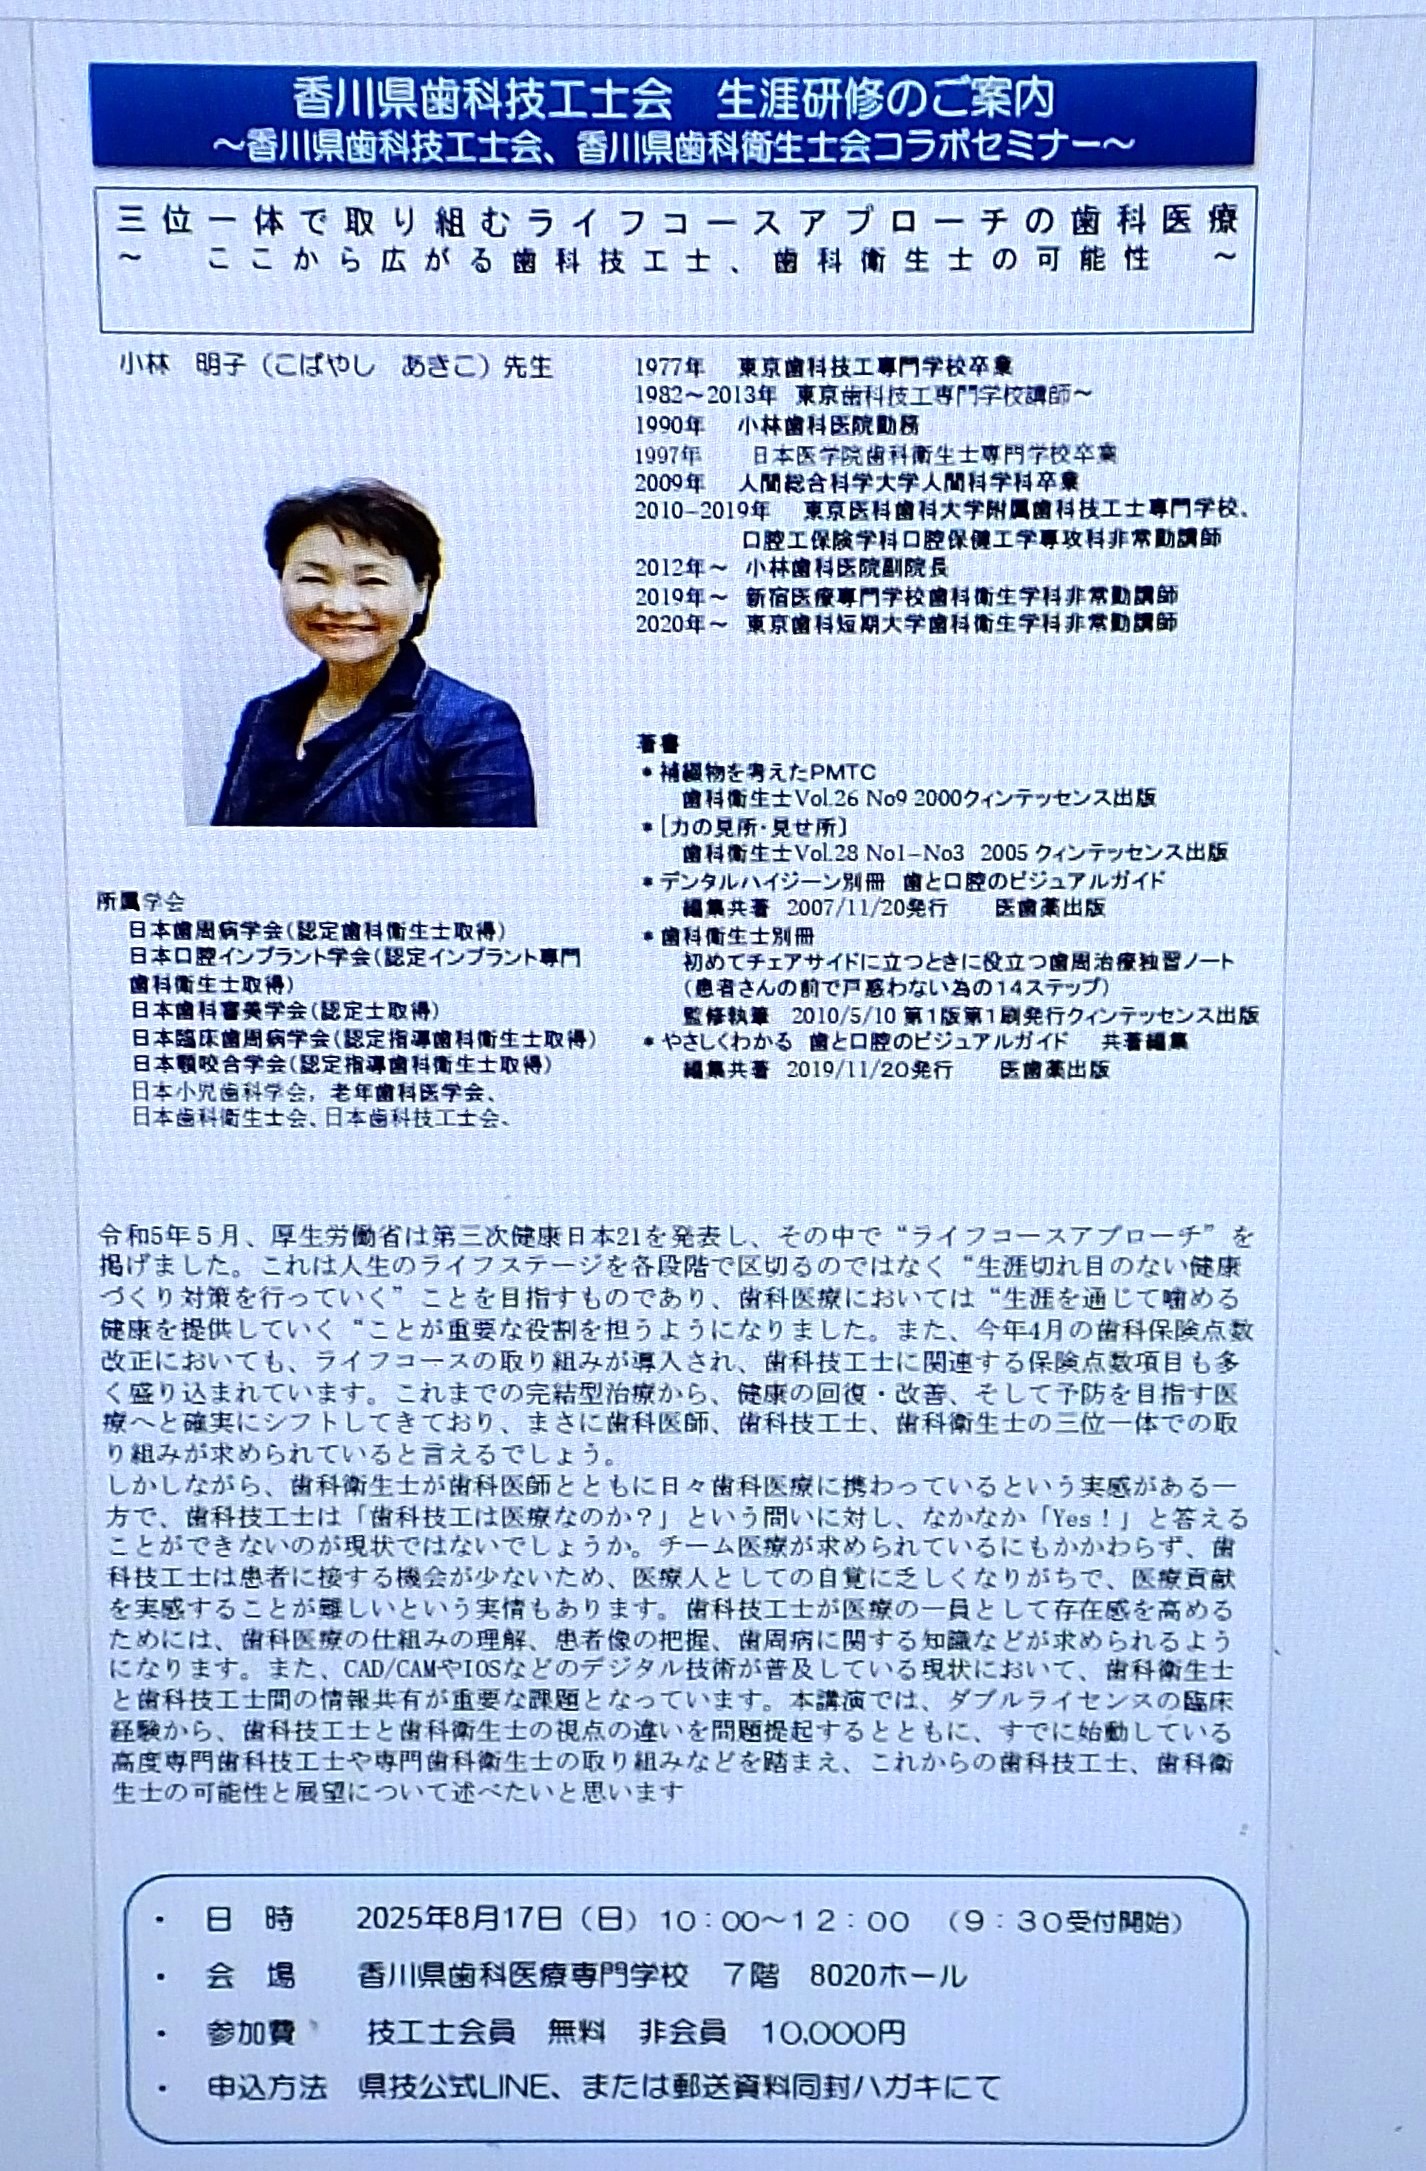 香川県歯科技工士会　生涯研修のご案内
～香川県歯科技工士会、香川県歯科衛生士会コラボセミナー～
三位一体で取り組むライフコースアプローチの歯科医療
～　ここから広がる歯科技工士、歯科衛生士の可能性　～
小林　明子（こばやし　あきこ）先生
1977年　東京歯科技工専門学校卒業
1982～2013年　東京歯科技工専門学校講師～
1990年　小林歯科医院勤務
1997年　日本医学院歯科衛生士専門学校卒業
2009年　人間総合科学大学人間科学科卒業
2010-2019年　東京医科歯科大学附属歯科技工士専門学校、
口腔工保険学科口腔保健工学専攻科非常勤講師
2012年～　小林歯科医院副院長
2019年～　新宿医療専門学校歯科衛生学科非常勤講師
2020年～　東京歯科短期大学歯科衛生学科非常勤講師
著書
* 補綴物を考えたPMTC
歯科衛生士Vol.26 No9 2000クィンテッセンス出版
* [力の見所・見せ所〕
歯科衛生士Vol.28 No1-No3 2005 クィンテッセンス出版
* デンタルハイジーン別冊　歯と口腔のビジュアルガイド
編集共著　2007/11/20発行　医歯薬出版
* 歯科衛生士別冊
初めてチェアサイドに立つときに役立つ歯周治療独習ノート
（患者さんの前で戸惑わない為の14ステップ）
監修執筆　2010/5/10 第1版第1刷発行クィンテッセンス出版
* やさしくわかる　歯と口腔のビジュアルガイド　共著編集
編集共著　2019/11/20発行　医歯薬出版
所属学会
日本歯周病学会（認定歯科衛生士取得）
日本口腔インプラント学会（認定インプラント専門
歯科衛生士取得）
日本歯科審美学会（認定士取得）
日本臨床歯周病学会（認定指導歯科衛生士取得）
日本顎咬合学会（認定指導歯科衛生士取得）
日本小児歯科学会，老年歯科医学会、
日本歯科衛生士会、日本歯科技工士会、
令和5年５月、厚生労働省は第三次健康日本21を発表し、その中で“ライフコースアプローチ”を
掲げました。これは人生のライフステージを各段階で区切るのではなく“生涯切れ目のない健康
づくり対策を行っていく”ことを目指すものであり、歯科医療においては“生涯を通じて噛める
健康を提供していく“ことが重要な役割を担うようになりました。また、今年4月の歯科保険点数
改正においても、ライフコースの取り組みが導入され、歯科技工士に関連する保険点数項目も多
く盛り込まれています。これまでの完結型治療から、健康の回復・改善、そして予防を目指す医
療へと確実にシフトしてきており、まさに歯科医師、歯科技工士、歯科衛生士の三位一体での取
り組みが求められていると言えるでしょう。
しかしながら、歯科衛生士が歯科医師とともに日々歯科医療に携わっているという実感がある一
方で、歯科技工士は「歯科技工は医療なのか？」という問いに対し、なかなか「Yes！」と答える
ことができないのが現状ではないでしょうか。チーム医療が求められているにもかかわらず、歯
科技工士は患者に接する機会が少ないため、医療人としての自覚に乏しくなりがちで、医療貢献
を実感することが難しいという実情もあります。歯科技工士が医療の一員として存在感を高める
ためには、歯科医療の仕組みの理解、患者像の把握、歯周病に関する知識などが求められるよう
になります。また、CAD/CAMやIOSなどのデジタル技術が普及している現状において、歯科衛生士
と歯科技工士間の情報共有が重要な課題となっています。本講演では、ダブルライセンスの臨床
経験から、歯科技工士と歯科衛生士の視点の違いを問題提起するとともに、すでに始動している
高度専門歯科技工士や専門歯科衛生士の取り組みなどを踏まえ、これからの歯科技工士、歯科衛
生士の可能性と展望について述べたいと思います
・　日　時　2025年8月17日（日）10：00～12：00　（9：30受付開始）
・　会　場　香川県歯科医療専門学校　7階　8020ホール
・　参加費　技工士会員　無料　非会員　10,000円
・　申込方法　県技公式LINE、または郵送資料同封ハガキにて